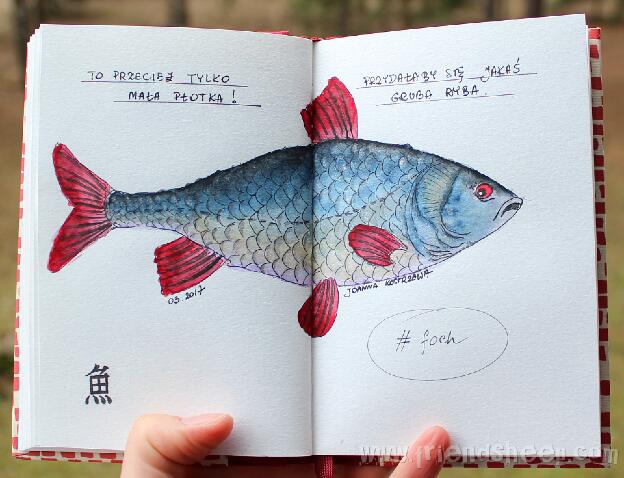 TO PRZECIEŻ TYLKO
MAŁA PŁOTKA!
PRZYDAŁABY SIĘ JAKAŚ
GRUBA RYBA.
03.2017
JOANNA KOSTRZAWA
# foch
魚
www.friendsheep.com